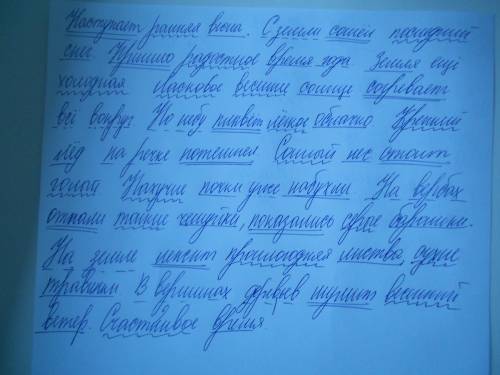 Наступает ранняя весна. С земли сошёл последний
снег. Пришло радостное время года. Земля ещё
холодная Ласковое весеннее солнце согревает
всё вокруг. По небу плывёт лёгкое облачко Крепкий
лёд на речке потемнел. Сонный лес стоит
голый Пахучие почки уже набухли. На вербах
отпали тонкие чешуйки, показались серые барашки.
На земле лежит прошлогодняя листва, сухие
травинки В вершинах деревьев шумит весенний
ветер. Счастливое время.